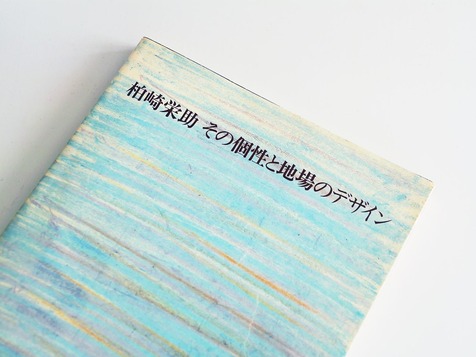 柏崎栄助 その個性と地場のデザイン